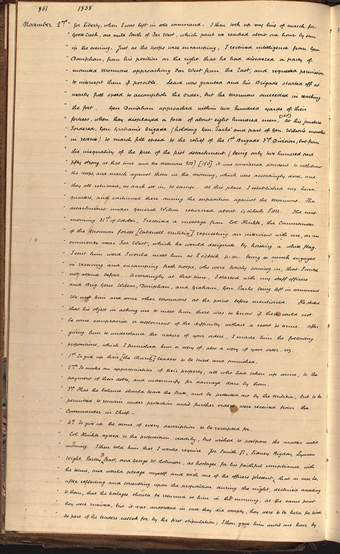 851 1838
November 2nd. for Liberty, when I was left in sole command. I then took up my line of march for
Goose Creek, one mile south of Far West, which point we reached about one hour by sun
in the evening. Just as the troops were encamping, I received intelligence from Gen
Doniphan, from his position on the right that he had discovered a party of
mounted Mormons approaching Far West from the East, and requested permission
to intercept them if possible. Leave was granted and his Brigade started off at
nearly full speed to accomplish the order, but the Mormons succeeded in reaching
the fort. Gen Doniphan approached within two hundred yards of their
fortress, when they displayed a force of about eight hundred men. At this juncture
I ordered Gen Graham's Brigade (holding Gen Parks' and part of Gen Wilson's mounted
in reserve) to march full speed to the relief of the 1st Brigade 3rd Division, but from
the inequality of the force of the first detachment (being only two hundred and
fifty strong at that time and the Mormons 800) it was considered prudent to withdraw
the troops and march against them in the morning, which was accordingly done, and
they all returned, as dark set in to camp. At this place I established my head
quarters, and continued there during the expedition against the Mormons. The
detachment under General Wilson returned about 12 o'clock P.M. The next
morning 31st of October, I received a message from Col Hinkle, the Commander
of the Mormon forces [Caldwell militia] requesting an interview with me, on an
eminence near Far West, which he would designate by hoisting a white flag.
I sent him word I would meet him at 2 o'clock P.M. being so much engaged
in receiving and encamping fresh troops, who were hourly coming in, that I could
not attend before. Accordingly at that time, I started with my staff officers
and Brig Gens Wilson, Doniphan, and Graham, Gen Parks being left in command
We met him and some other Mormons at the point before mentioned. He stated
that his object in asking me to meet him there was to know if there could not
be some compromise or settlement of the difficulty without a resort to arms. After
giving him to understand the nature of your orders, I made him the following
propositions, which I furnished him a copy of, also a copy of your order, viz
1st To give up their [the church's] leaders to be tried and punished.
2nd To make an appropriation of their property, all who had taken up arms, to the
payment of their debts, and indemnify for damage done by them.
3rd That the balance should leave the State, and be protected out by the militia, but to be
permitted to remain under protection until further orders were received from the
Commander in Chief.
4th To give up the arms of every description to be receipted for.
Col Hinkle agreed to the proposition readily, but wished to postpone the matter until
morning. I then told him that I would require Jos Smith Jr, Sidney Rigdon, Lyman
Wight, Parley Pratt, and George W. Robinson, as hostages for his faithful compliance with
the terms, and would pledge myself and each one of the officers present, that in case he,
after reflecting and consulting upon the proposition during the night, declined acceding
to them, that the hostages should be returned to him in the morning, at the same point
they were received, but it was understood in case they did comply, they were to be held for trial
as part of the leaders called for by the first stipulation; I then gave him until one hour by